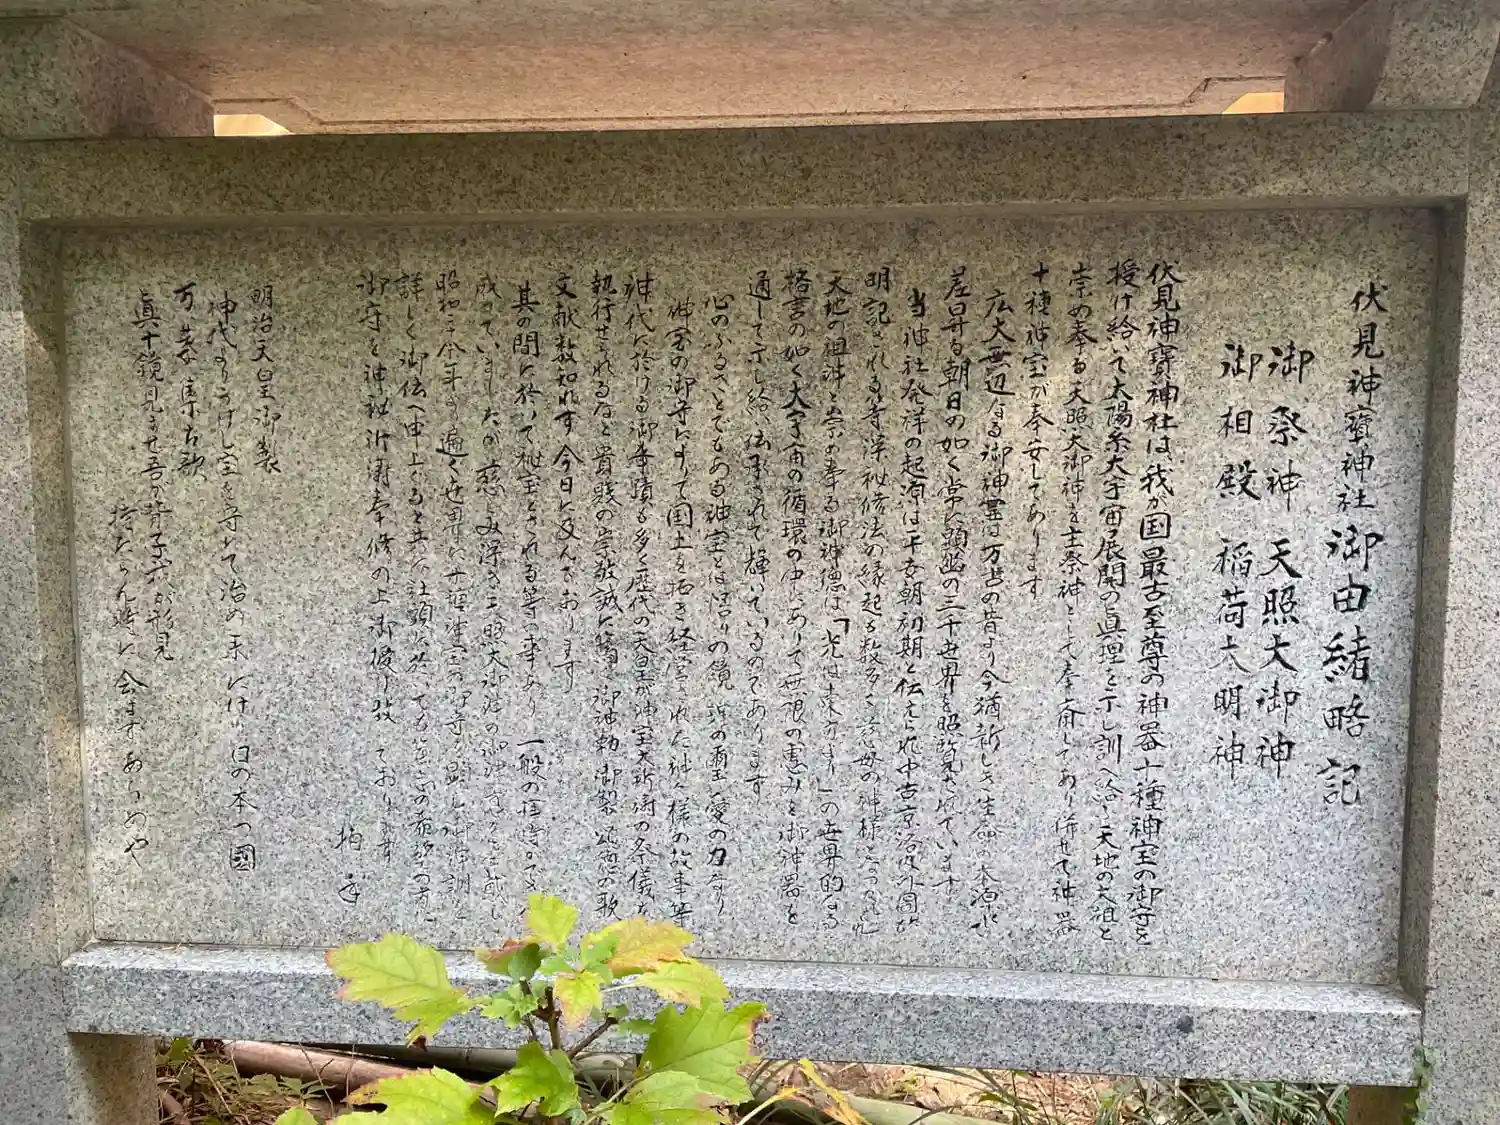 伏見神寶神社御由緒略記
御祭神 天照大御神
御相殿 稲荷大明神
伏見神寶神社は我が国最古至尊の神器十種神宝の御守を
授け給いて太陽系大宇宙の展開の眞理を示し訓へ給う天地の大祖と
崇め奉る天照大御神を主祭神として奉斎してあり併せて神器
十種神宝が奉安してあります
広大無辺なる御神霊は万古の昔より今猶新しき生命の本源
差昇る朝日の如く常に顕幽の三千世界を照
当神社発祥の起源は平安朝初期と伝えられ中古京洛
明記される等 秘修法の縁起も数多く
天地の祖神と崇め奉る御神徳は「光は東方より」の世界的なる
格言の如く大宇宙の循環の中にありて無限の恵みを御神器を
通して示し給い伝承されて輝いているのであります
心のふるさとでもある神宝とは悟りの鏡 愛の力なり
神宝の御守によりて国土を拓き経営された神々様の故事等
神代に於ける御事蹟も多く歴代の天皇が神宝大祈祷の祭儀を
執行せられるなど貴賤の崇敬誠に篤く御神勅御製 の歌
文献数知れず今日に及んでおります
其の間に於いて秘宝とされる等の事あり 一般の
成っていましたが慈しみ深き天照大御神の
昭和三十 年 遍く世界に十種神宝の御守を顕
詳しく御伝へ申上ぐると共に社頭に於いても
御守を神秘祈祷奉修の上御授け致しております
拍手
明治天皇御製
神代よりうけし宝を守りにて治め来にけり日の本つ國
万葉集古歌
眞十鏡見ませ吾が背子わが形見
持たらん時に会はずあらめや